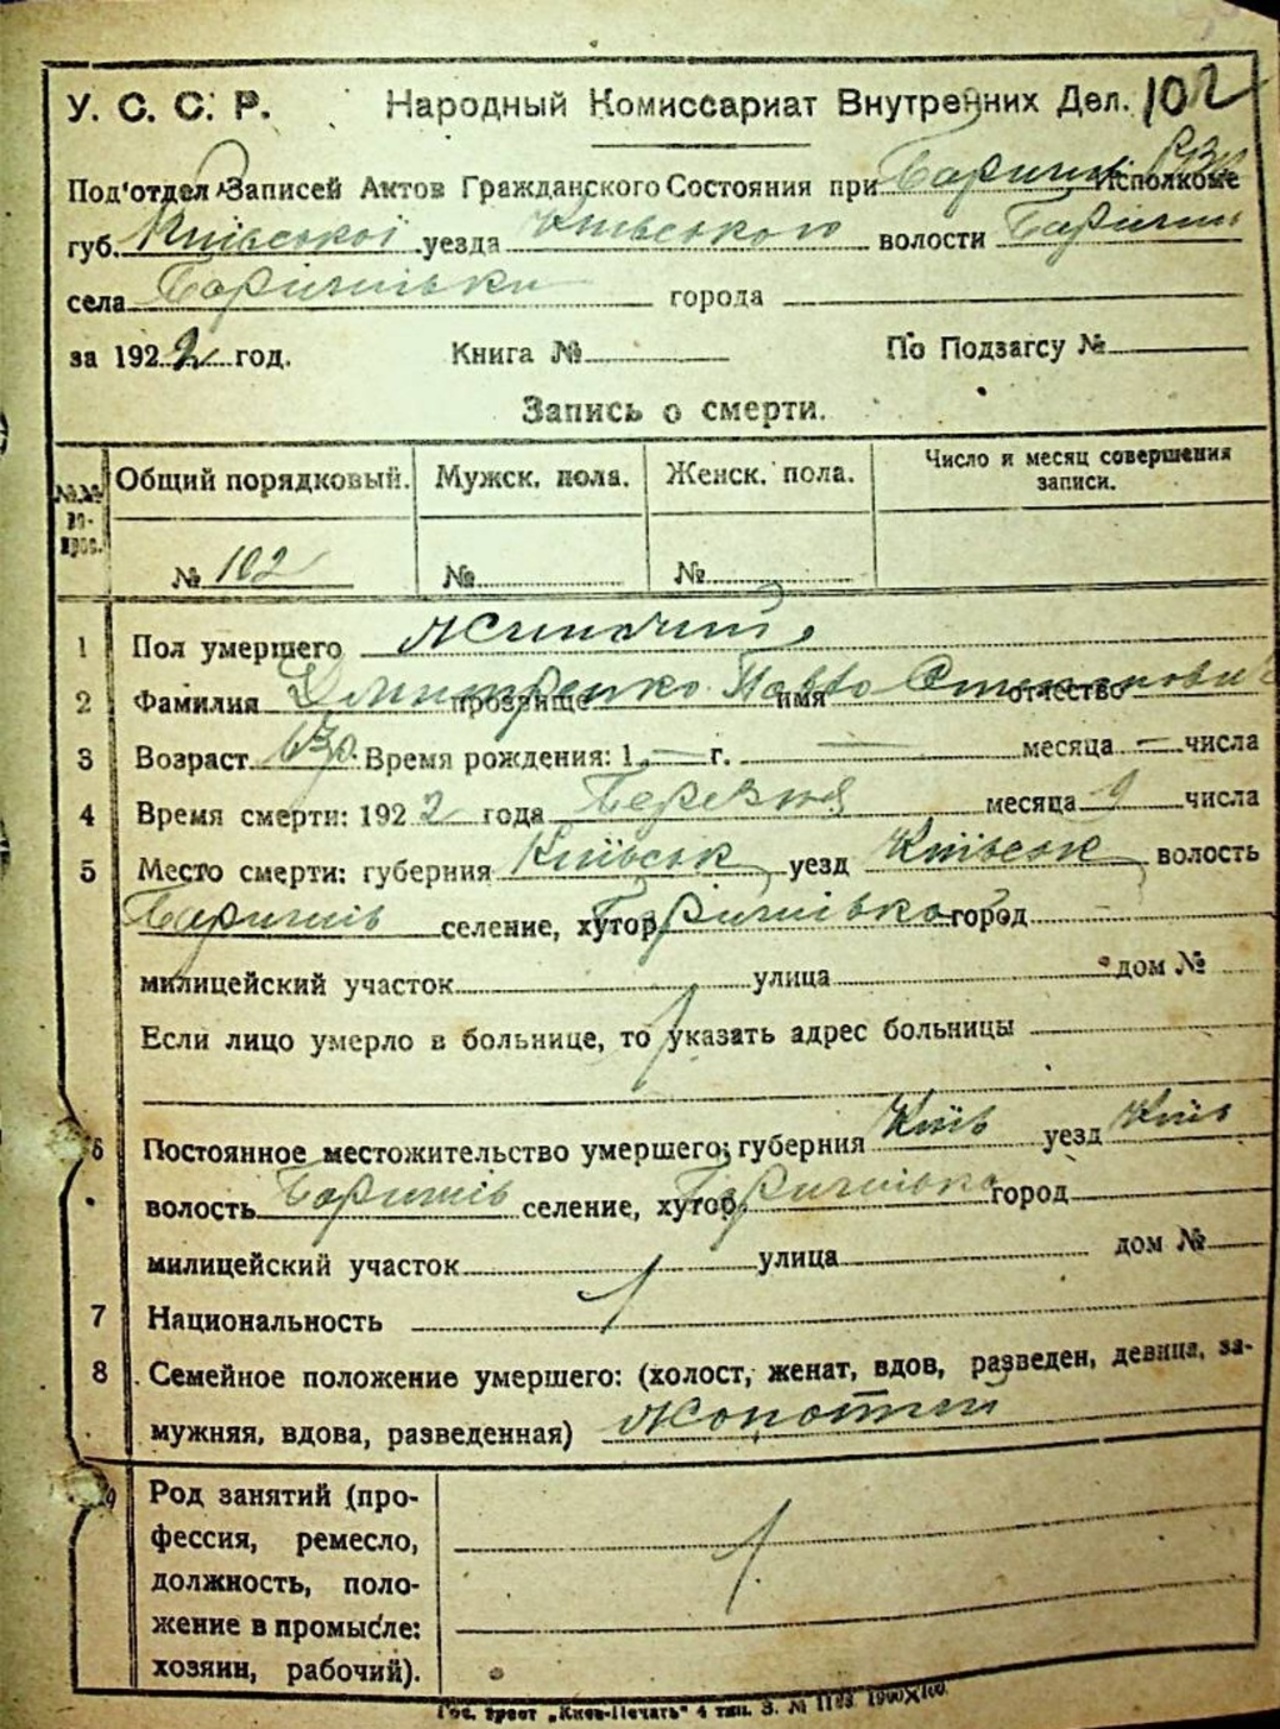 У. С. С. Р. Народный Комиссариат Внутренних Дел. 102
Под'отдел Записей Актов Гражданского Состояния при Исполкоме
губ. Київської уезда Київського волости Баришів
села Баришівки города
за 1922 год. Книга № По Подзагсу №
Запись о смерти.
№№ вопрос. Общий порядковый. Мужск. пола. Женск. пола. Число и месяц совершения записи.
№ 102 № №
1 Пол умершего
2 Фамилия Дмитренко прозвище Павло имя Степанович отчество
3 Возраст Время рождения: 1 — г. — месяца — числа
4 Время смерти: 1922 года Березня месяца 9 числа
5 Место смерти: губерния Київськ уезд Київськ волость
Баришів селение, хутор Баришівка город
милицейский участок улица дом №
Если лицо умерло в больнице, то указать адрес больницы
6 Постоянное местожительство умершего: губерния Київ уезд Київ
волость Баришів селение, хутор Баришівка город
милицейский участок улица дом №
7 Национальность
8 Семейное положение умершего: (холост, женат, вдов, разведен, девица, за-
мужняя, вдова, разведенная) Жонатий
9 Род занятий (про-
фессия, ремесло,
должность, поло-
жение в промысле:
хозяин, рабочий).
Гос. трест „Киев-Печать" 4 тип. З. №